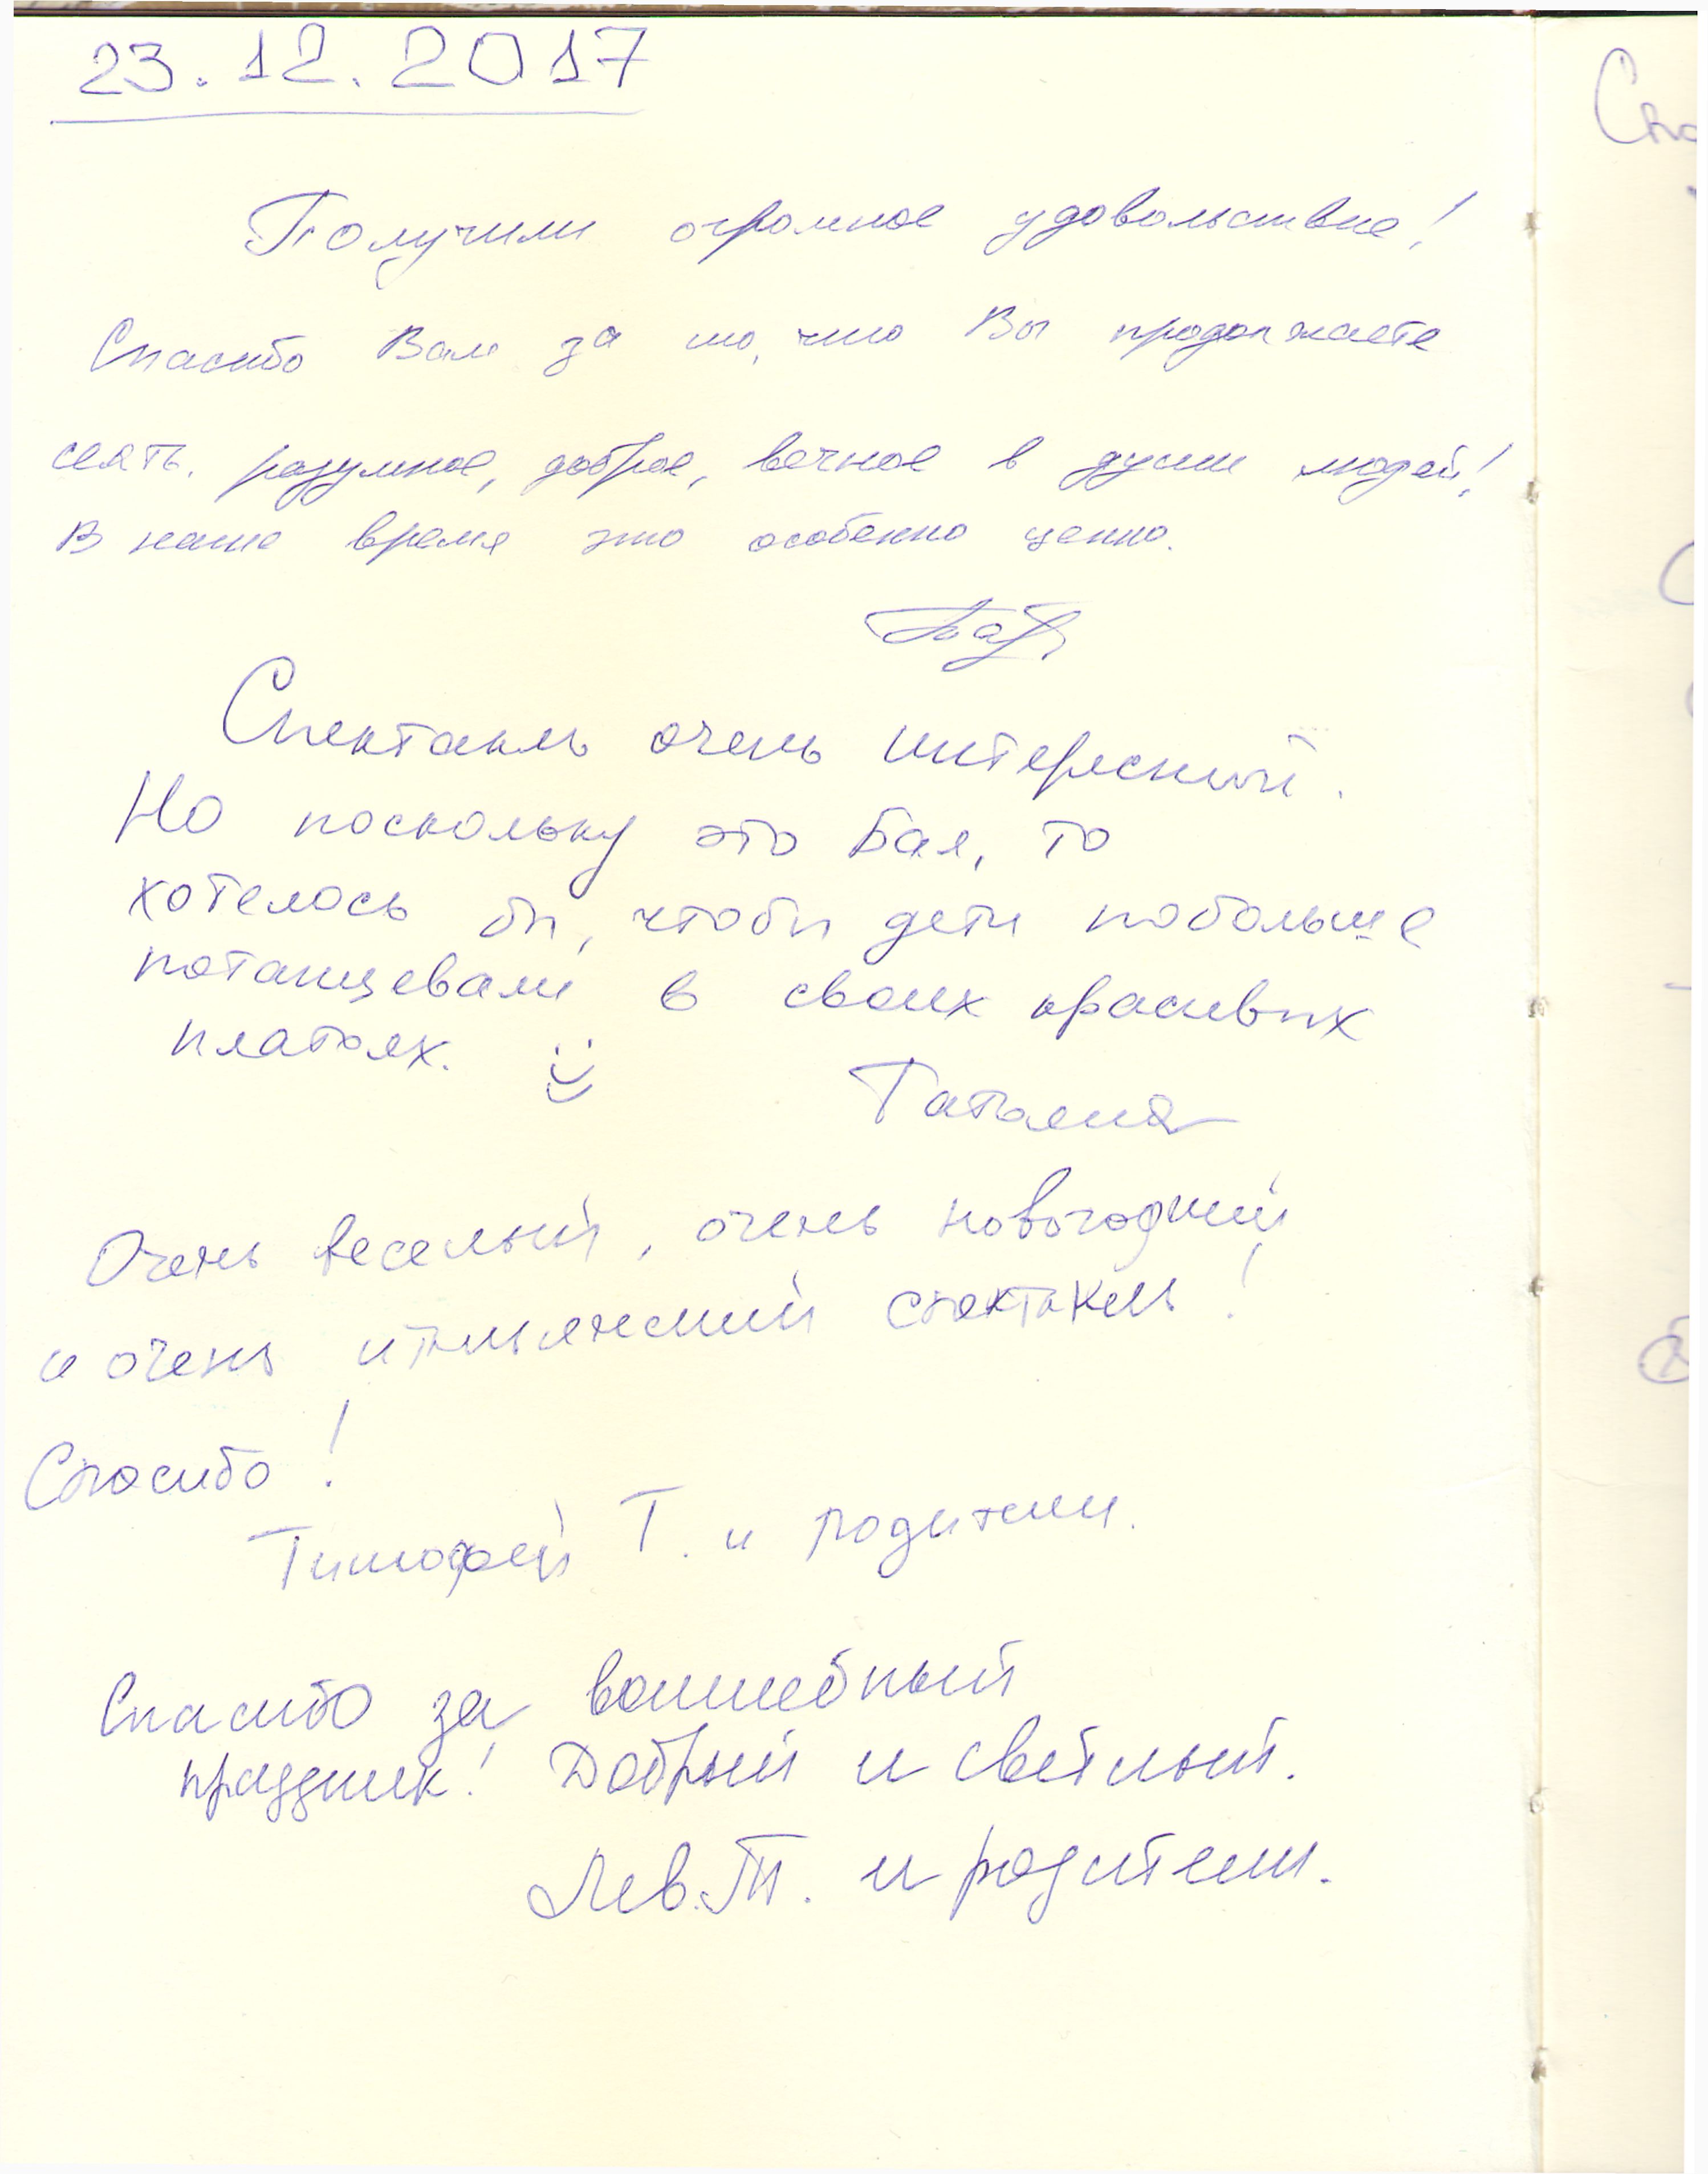 23.12.2017
Получили огромное удовольствие!
Спасибо Вам за то, что Вы продолжаете
сеять. разумное, доброе, вечное в души людей!
В наше время это особенно ценно.
Спектакль очень интересный.
Но поскольку это Бал, то
хотелось бы, чтобы дети побольше
потанцевали в своих красивых
платьях.
Татьяна
Очень веселый, очень новогодний
и очень итальянский спектакль!
Спасибо!
Тимофей Т. и родители.
Спасибо за волшебный
праздник! Добрый и светлый.
Лев. Т. и родители.